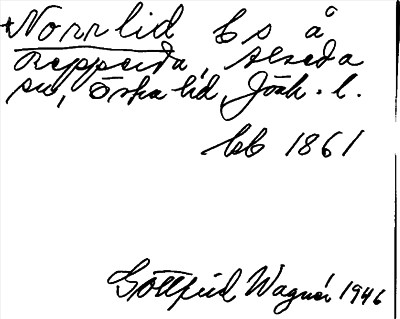 +Norrlid bs å
Repperda, Alseda
sn, Östra hd, Jönk. l.
kb 1861
Gottfrid Wagnér 1946